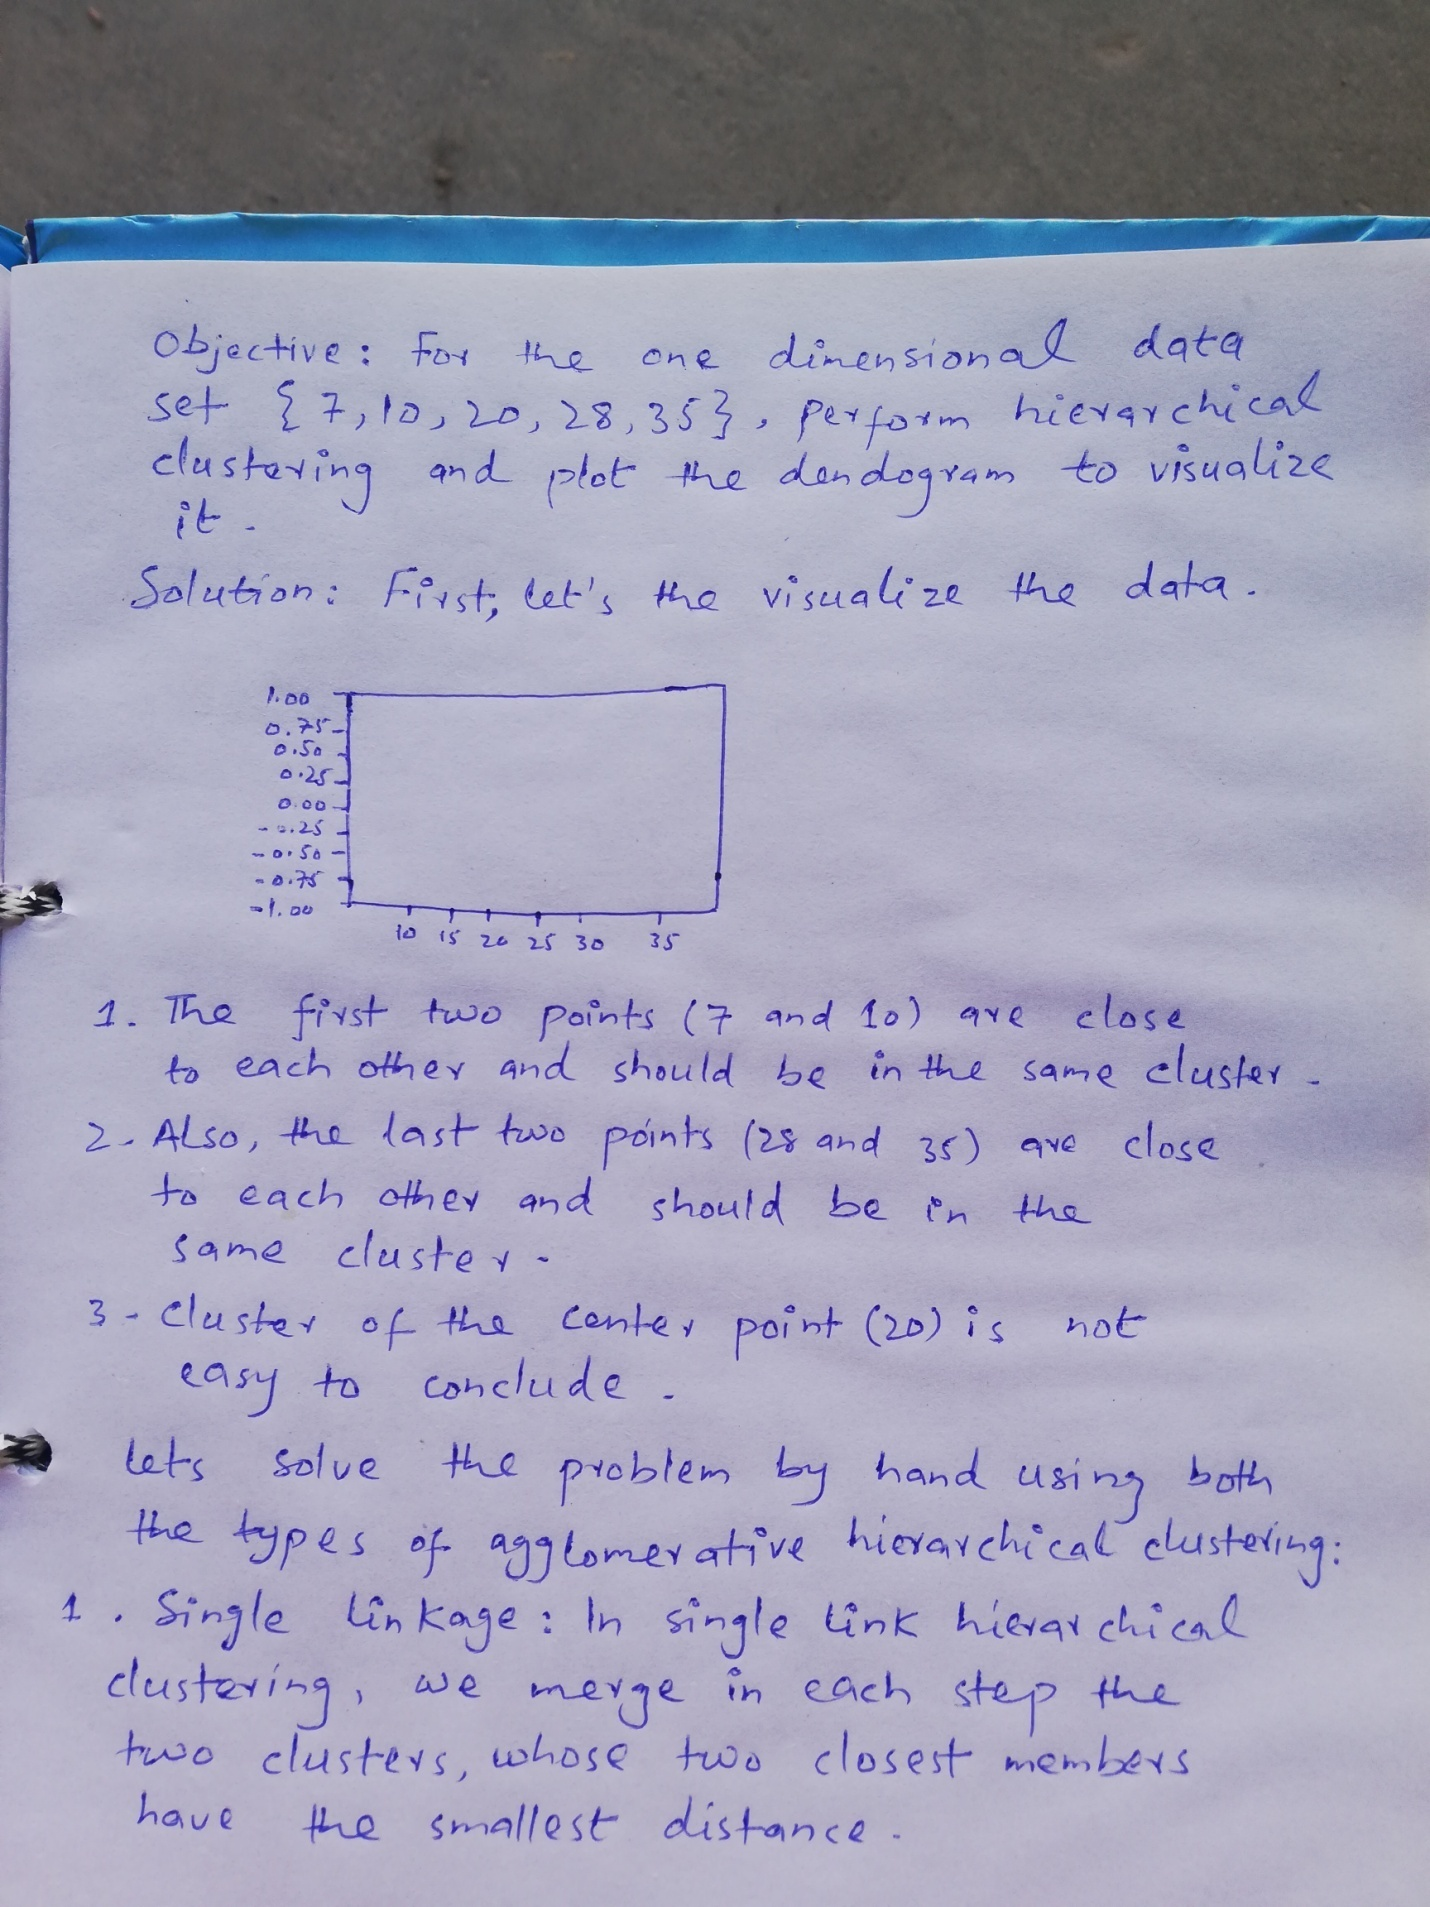 Objective: For the one dimensional data
set {7,10,20,28,35}, perform hierarchical
clustering and plot the dendogram to visualize
it.
Solution: First, let's the visualize the data.
1.00
0.75
0.50
0.25
0.00
-0.25
-0.50
-0.75
-1.00
10 15 20 25 30 35
1. The first two points (7 and 10) are close
to each other and should be in the same cluster.
2. Also, the last two points (28 and 35) are close
to each other and should be in the
same cluster.
3. Cluster of the center point (20) is not
easy to conclude.
Lets solve the problem by hand using both
the types of agglomerative hierarchical clustering:
1. Single linkage: In single link hierarchical
clustering, we merge in each step the
two clusters, whose two closest members
have the smallest distance.